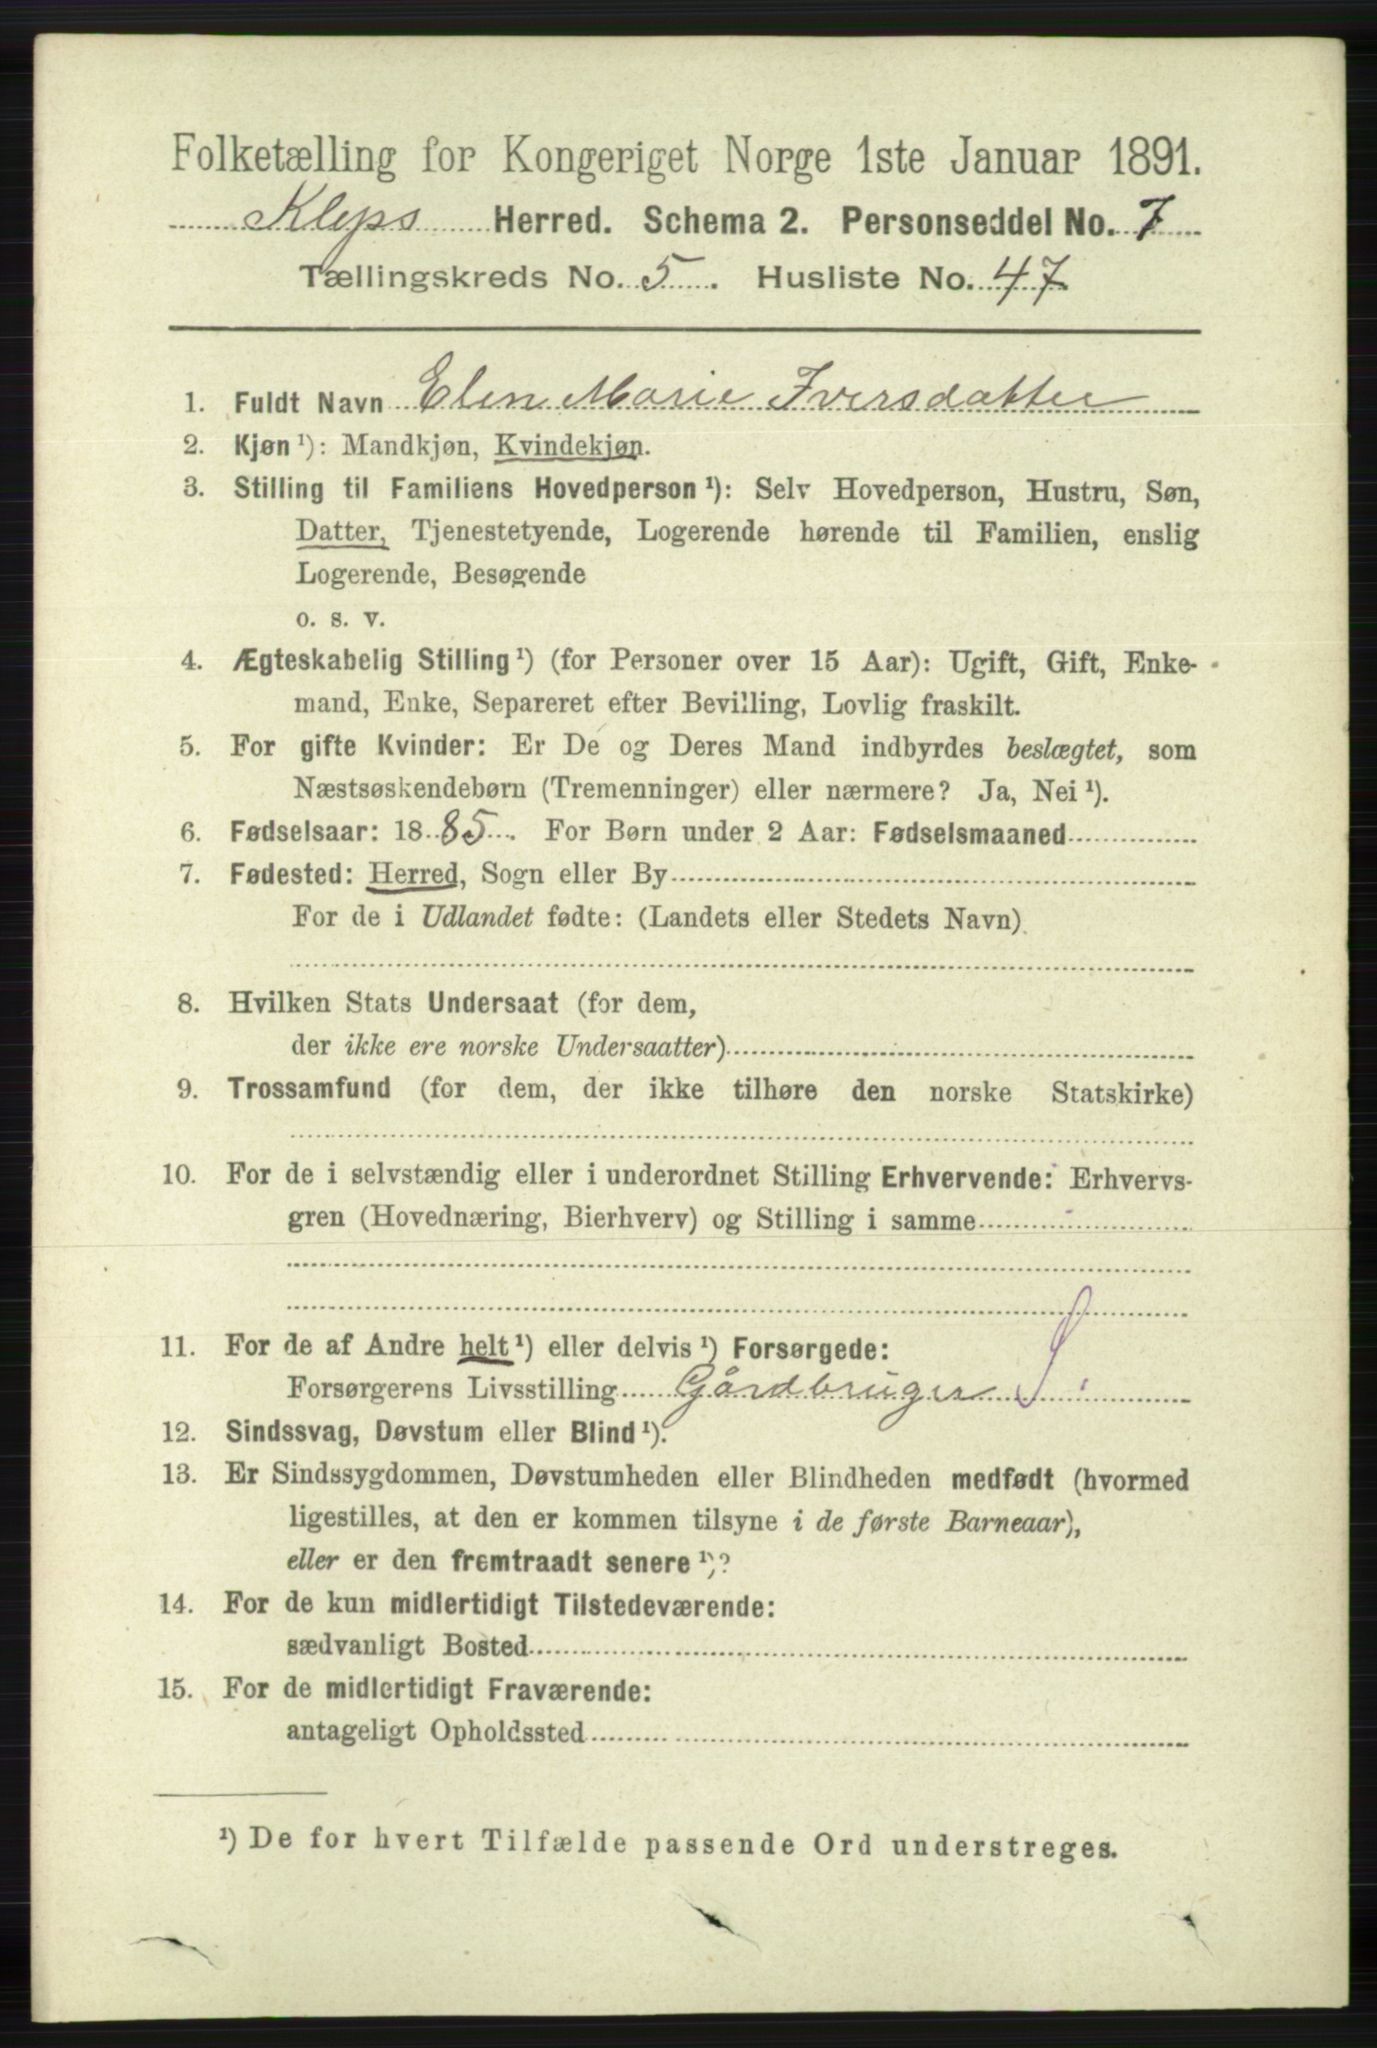 Folketælling for Kongeriget Norge 1ste Januar 1891.
Kleps Herred. Schema 2. Personseddel No. 7
Tællingskreds No. 5. Husliste No. 47
1. Fuldt Navn Elen Marie Iversdatter
2. Kjøn ¹): Mandkjøn, Kvindekjøn.
3. Stilling til Familiens Hovedperson ¹): Selv Hovedperson, Hustru, Søn,
Datter, Tjenestetyende, Logerende hørende til Familien, enslig
Logerende, Besøgende
o. s. v.
4. Ægteskabelig Stilling ¹) (for Personer over 15 Aar): Ugift, Gift, Enke-
mand, Enke, Separeret efter Bevilling, Lovlig fraskilt.
5. For gifte Kvinder: Er De og Deres Mand indbyrdes beslægtet, som
Næstsøskendebørn (Tremenninger) eller nærmere? Ja, Nei ¹).
6. Fødselsaar: 1885. For Børn under 2 Aar: Fødselsmaaned
7. Fødested: Herred, Sogn eller By
For de i Udlandet fødte: (Landets eller Stedets Navn)
8. Hvilken Stats Undersaat (for dem,
der ikke ere norske Undersaatter)
9. Trossamfund (for dem, der ikke tilhøre den norske Statskirke)
10. For de i selvstændig eller i underordnet Stilling Erhvervende: Erhvervs-
gren (Hovednæring, Bierhverv) og Stilling i samme
11. For de af Andre helt ¹) eller delvis ¹) Forsørgede:
Forsørgerens Livsstilling Gårdbruger
12. Sindssvag, Døvstum eller Blind ¹).
13. Er Sindssygdommen, Døvstumheden eller Blindheden medfødt (hvormed
ligestilles, at den er kommen tilsyne i de første Barneaar),
eller er den fremtraadt senere ¹)?
14. For de kun midlertidigt Tilstedeværende:
sædvanligt Bosted
15. For de midlertidigt Fraværende:
antageligt Opholdssted
¹) De for hvert Tilfælde passende Ord understreges.